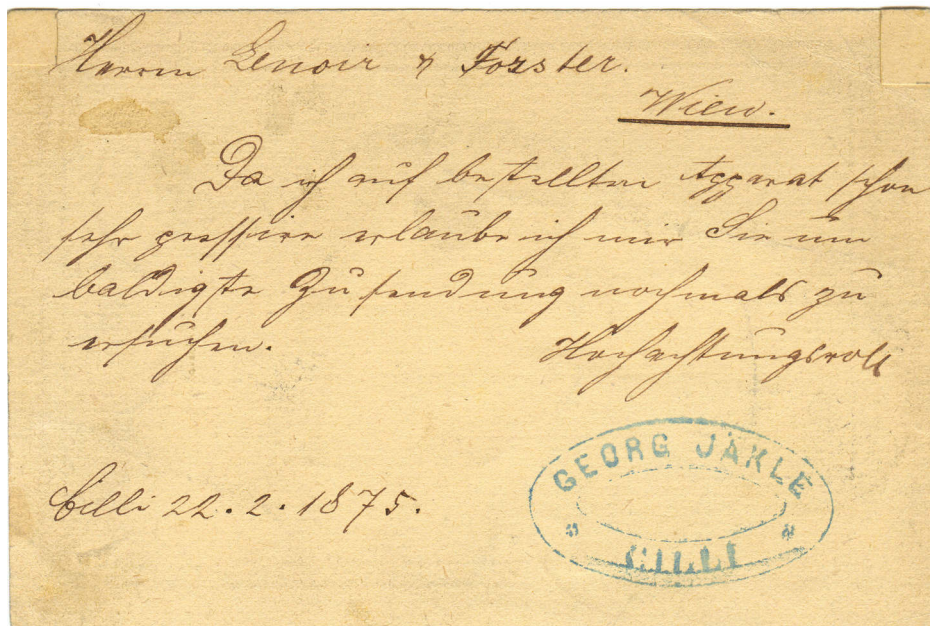 Herren Lenoir & Forster.
Wien.
Da ich auf bestellten Apparat schon
sehr pressire erlaube ich mir Sie um
baldigste Zusendung nochmals zu
ersuchen.
Hochachtungsvoll
Cilli 22. 2. 1875.
GEORG JÄKLE
CILLI